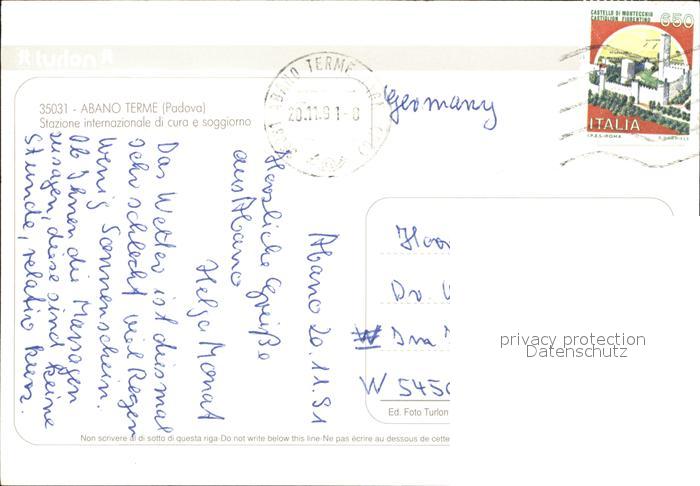 turlon
35031 - ABANO TERME (Padova)
Stazione internazionale di cura e soggiorno
ABANO TERME
20.11.91-8
Germany
CASTELLO DI MONTECCHIO
CASTIGLION FIORENTINO
650
ITALIA
I.P.Z.S.-ROMA
Abano 20.11.91
Herzliche Grüße
aus Abano
Helga Monat
Das Wetter ist diesmal
sehr schlecht viel Regen
wenig Sonnenschein.
Ob Ihnen die Massagen
zusagen, diese sind keine
Stunde, relativ kurz.
Dr.
W 545
privacy protection
Datenschutz
Ed. Foto Turlon
Non scrivere al di sotto di questa riga-Do not write below this line-Ne pas écrire au dessous de cette